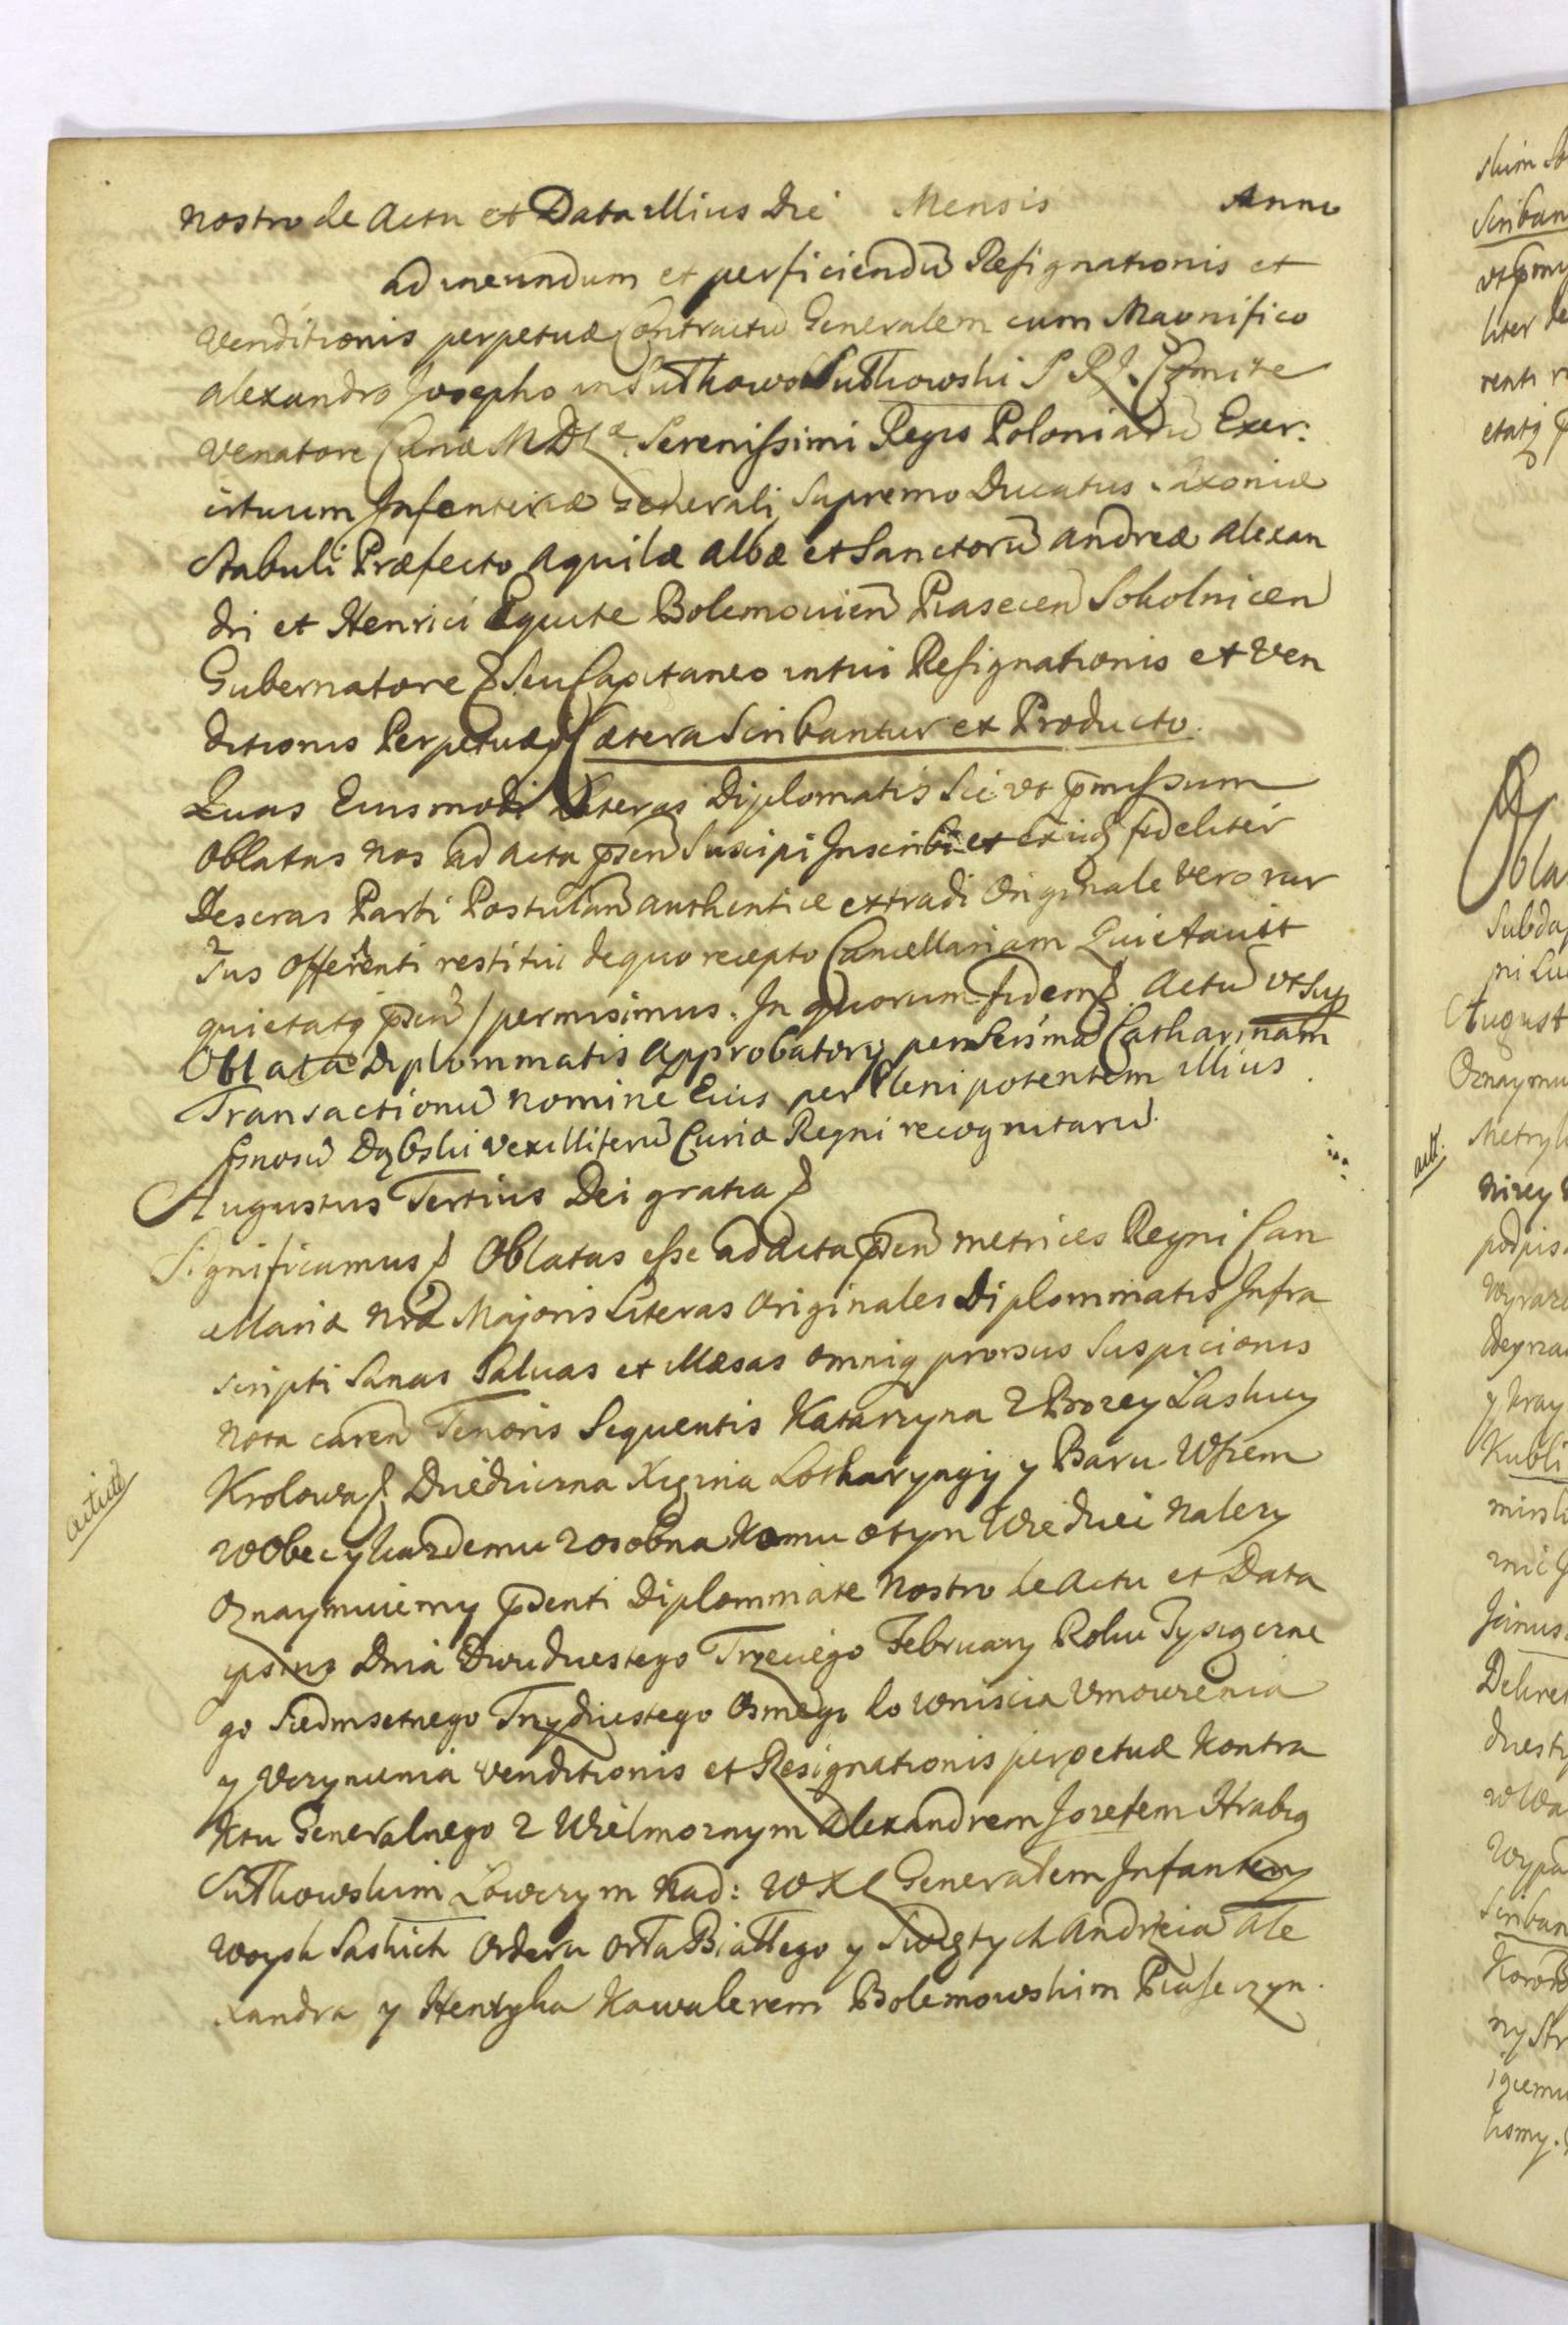 nostro de Actu et Data illius Die Mensis Anno
ad ineundum et perficiendū Resignationis et
Venditionis perpetuæ Contractū Generalem cum Magnifico
Alexandro Josepho in Sułkowo Sułkowski S. R. J. Comite
Venatore Curiæ M D L Serenissimi Regis Poloniarū Exer:
cituum Infanteriæ Generali Supremo Ducatus Saxoniæ
Stabuli Præfecto Aquilæ Albæ et Sanctorū Andreæ Alexan
dri et Henrici Equite Bolemovien Piasecen Sokolnicen
Gubernatore Seu Capitaneo intui Resignationis et Ven
ditionis Perpetuæ Cætera Scribantur ex Producto.
Quas Eiusmodi Literas Diplomatis Sic vt pmissum
Oblatas nos ad Acta psen Suscipi Inscribi et exiis fideliter
Descras Parti Postulan authentice extradi Originale Vero rur
sus Offerenti restitui de quo recepto Cancellariam Quietavit
quietatq psen permisimus. In quorum fidem Actū vt sup
Oblata Diplommatis Approbatory per Serſmā Catharinam
Transactionū nomine Eius per Plenipotentem illius
Gnosū Dąbski Vexilliferū Curiæ Regni recognitarū.
Augustus Tertius Dei gratia
Significamus Oblatas esse ad Acta psen metrices Regni Can
cellariæ nræ Majoris Literas Originales Diplommatis Infra
scripti Sanas Salvas et illæsas omniq prorsus Suspicionis
nota caren Tenoris Sequentis Katarzyna z Bozey Łaski
Krolowa Dziedziczna Xięzna Lotharyngij y Baru Wszem
wobec y kazdemu z osobna Komu o tym Wiedziec nalezy
Oznaymuiemy psenti Diplommate nostro de Actu et Data
ipsius Dnia Dwudziestego Trzeciego February Roku Tysiączne
go Siedmsetnego Trzydziestego Osmego do wniscia Vmowienia
y Vczynienia Venditionis et Resignationis perpetuæ Kontra
ktu Generalnego z Wielmoznym Alexandrem Jozefem Hrabią
Sułkowskim Łowczym Nad: W X L Generałem Infantery
Woysk Saskich Orderu Orła Białłego y Swiętych Andrzeia Ale
xandra y Henryka Kawalerem Bolemowskim Piaseczyn